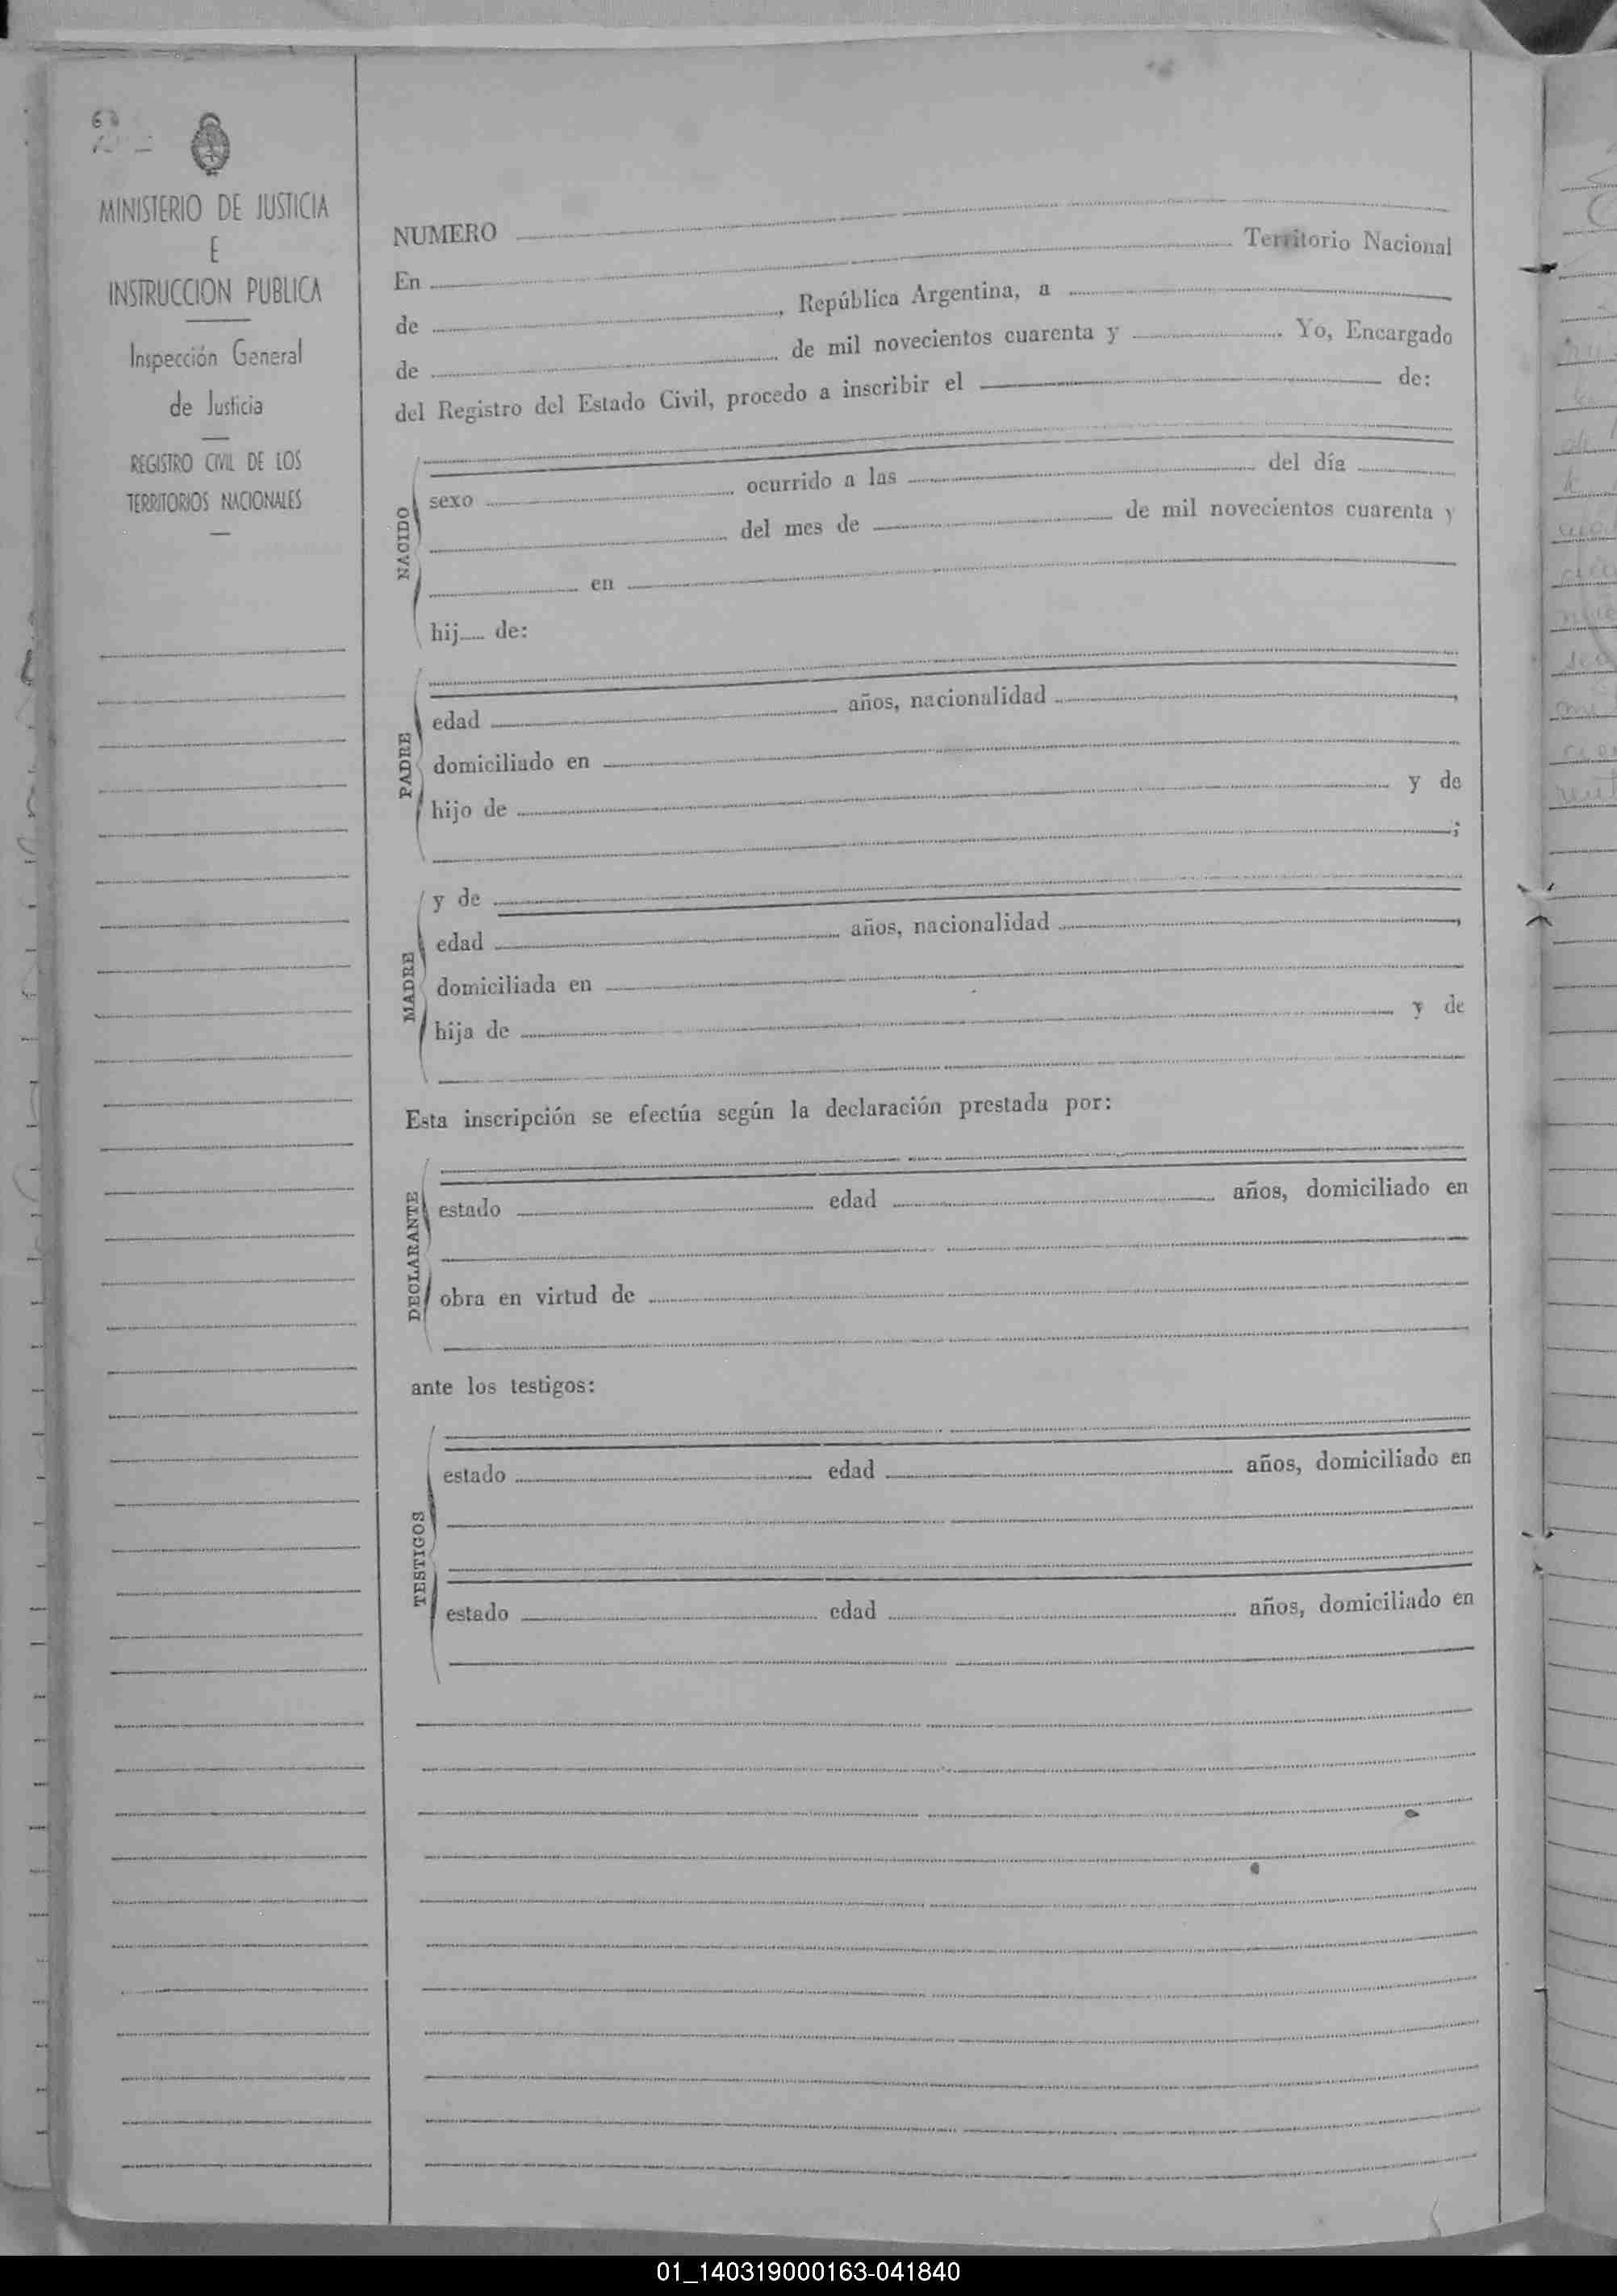 MINISTERIO DE JUSTICIA
E
INSTRUCCION PUBLICA
Inspección General
de Justicia
REGISTRO CIVIL DE LOS
TERRITORIOS NACIONALES
NUMERO
En Territorio Nacional
de , República Argentina, a
de de mil novecientos cuarenta y . Yo, Encargado
del Registro del Estado Civil, procedo a inscribir el de:
NACIDO
sexo ocurrido a las del día
del mes de de mil novecientos cuarenta y
en
hij de:
PADRE
edad años, nacionalidad ,
domiciliado en
hijo de y de
;
MADRE
y de
edad años, nacionalidad ,
domiciliada en
hija de y de
Esta inscripción se efectúa según la declaración prestada por:
DECLARANTE
estado edad años, domiciliado en
obra en virtud de
ante los testigos:
TESTIGOS
estado edad años, domiciliado en
estado edad años, domiciliado en
01_140319000163-041840